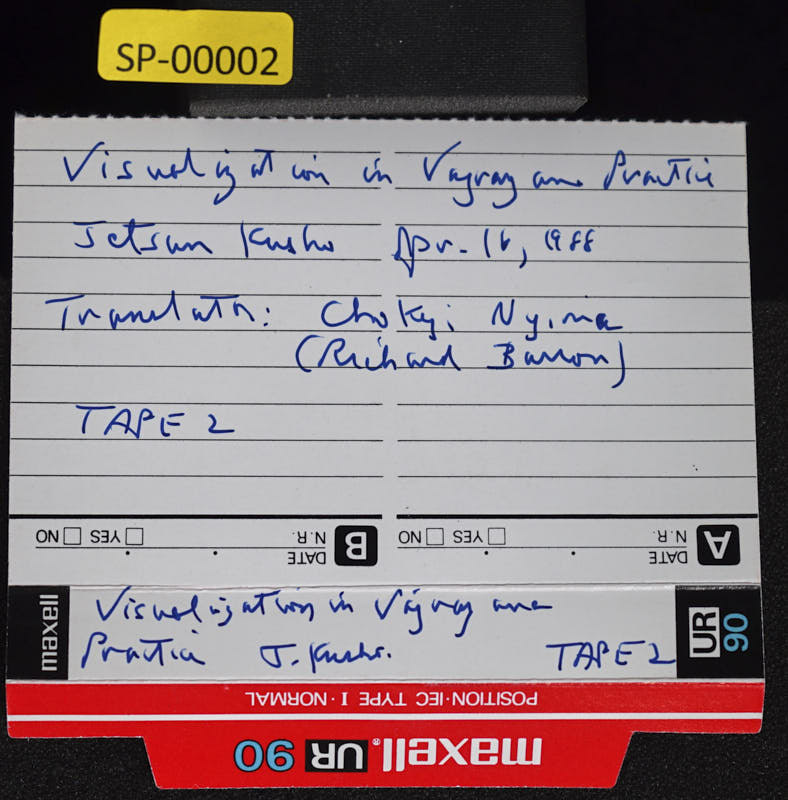 SP-00002
Visualization in Vajrayana Practice
Jetsun Kusho Apr. 16, 1988
Translator: Chokyi Nyima
(Richard Barron)
TAPE 2
B DATE N.R. YES NO
A DATE N.R. YES NO
maxell
Visualization in Vajrayana
Practice J. Kusho. TAPE 2
UR 90
POSITION·IEC TYPE I·NORMAL
maxell® UR 90